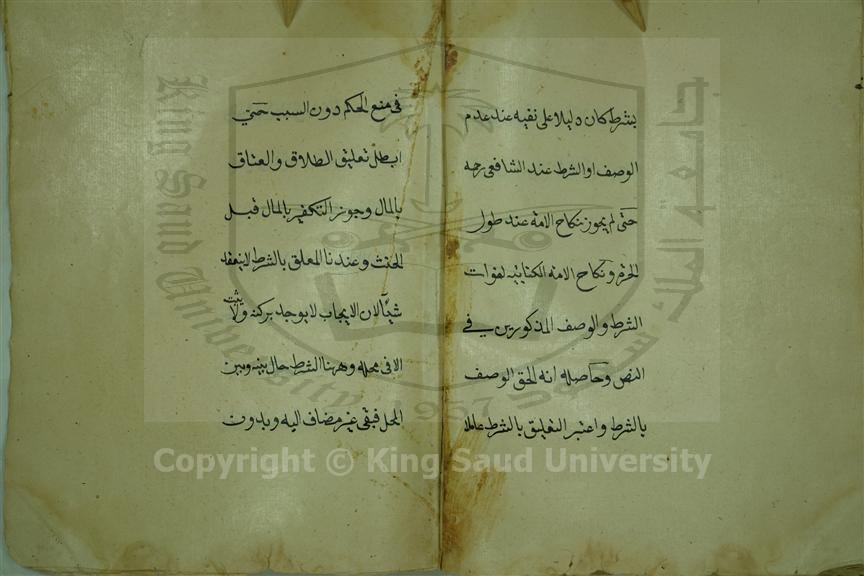 بشرط كان دليلا على نفيه عند عدم
الوصف او الشرط عند الشافعي رحه
حتى لم يجوز نكاح الامة عند طول
الحرة ونكاح الامة الكتابية لفوات
الشرط والوصف المذكورين في
النص وحاصله انه الحق الوصف
بالشرط واعتبر التعليق بالشرط عاملا
في منع الحكم دون السبب حتي
ابطل تعليق الطلاق والعتاق
بالمال وجوز التكفير بالمال قبل
الحنث وعندنا المعلق بالشرط لا ينعقد
شيئا لان الايجاب لا يوجد بركنه ولا يثبت
الا في محله وههنا الشرط حال بينه وبين
المحل فبقي غير مضاف اليه وبدون
King Saud University
جامعة الملك سعود
1957
Copyright © King Saud University